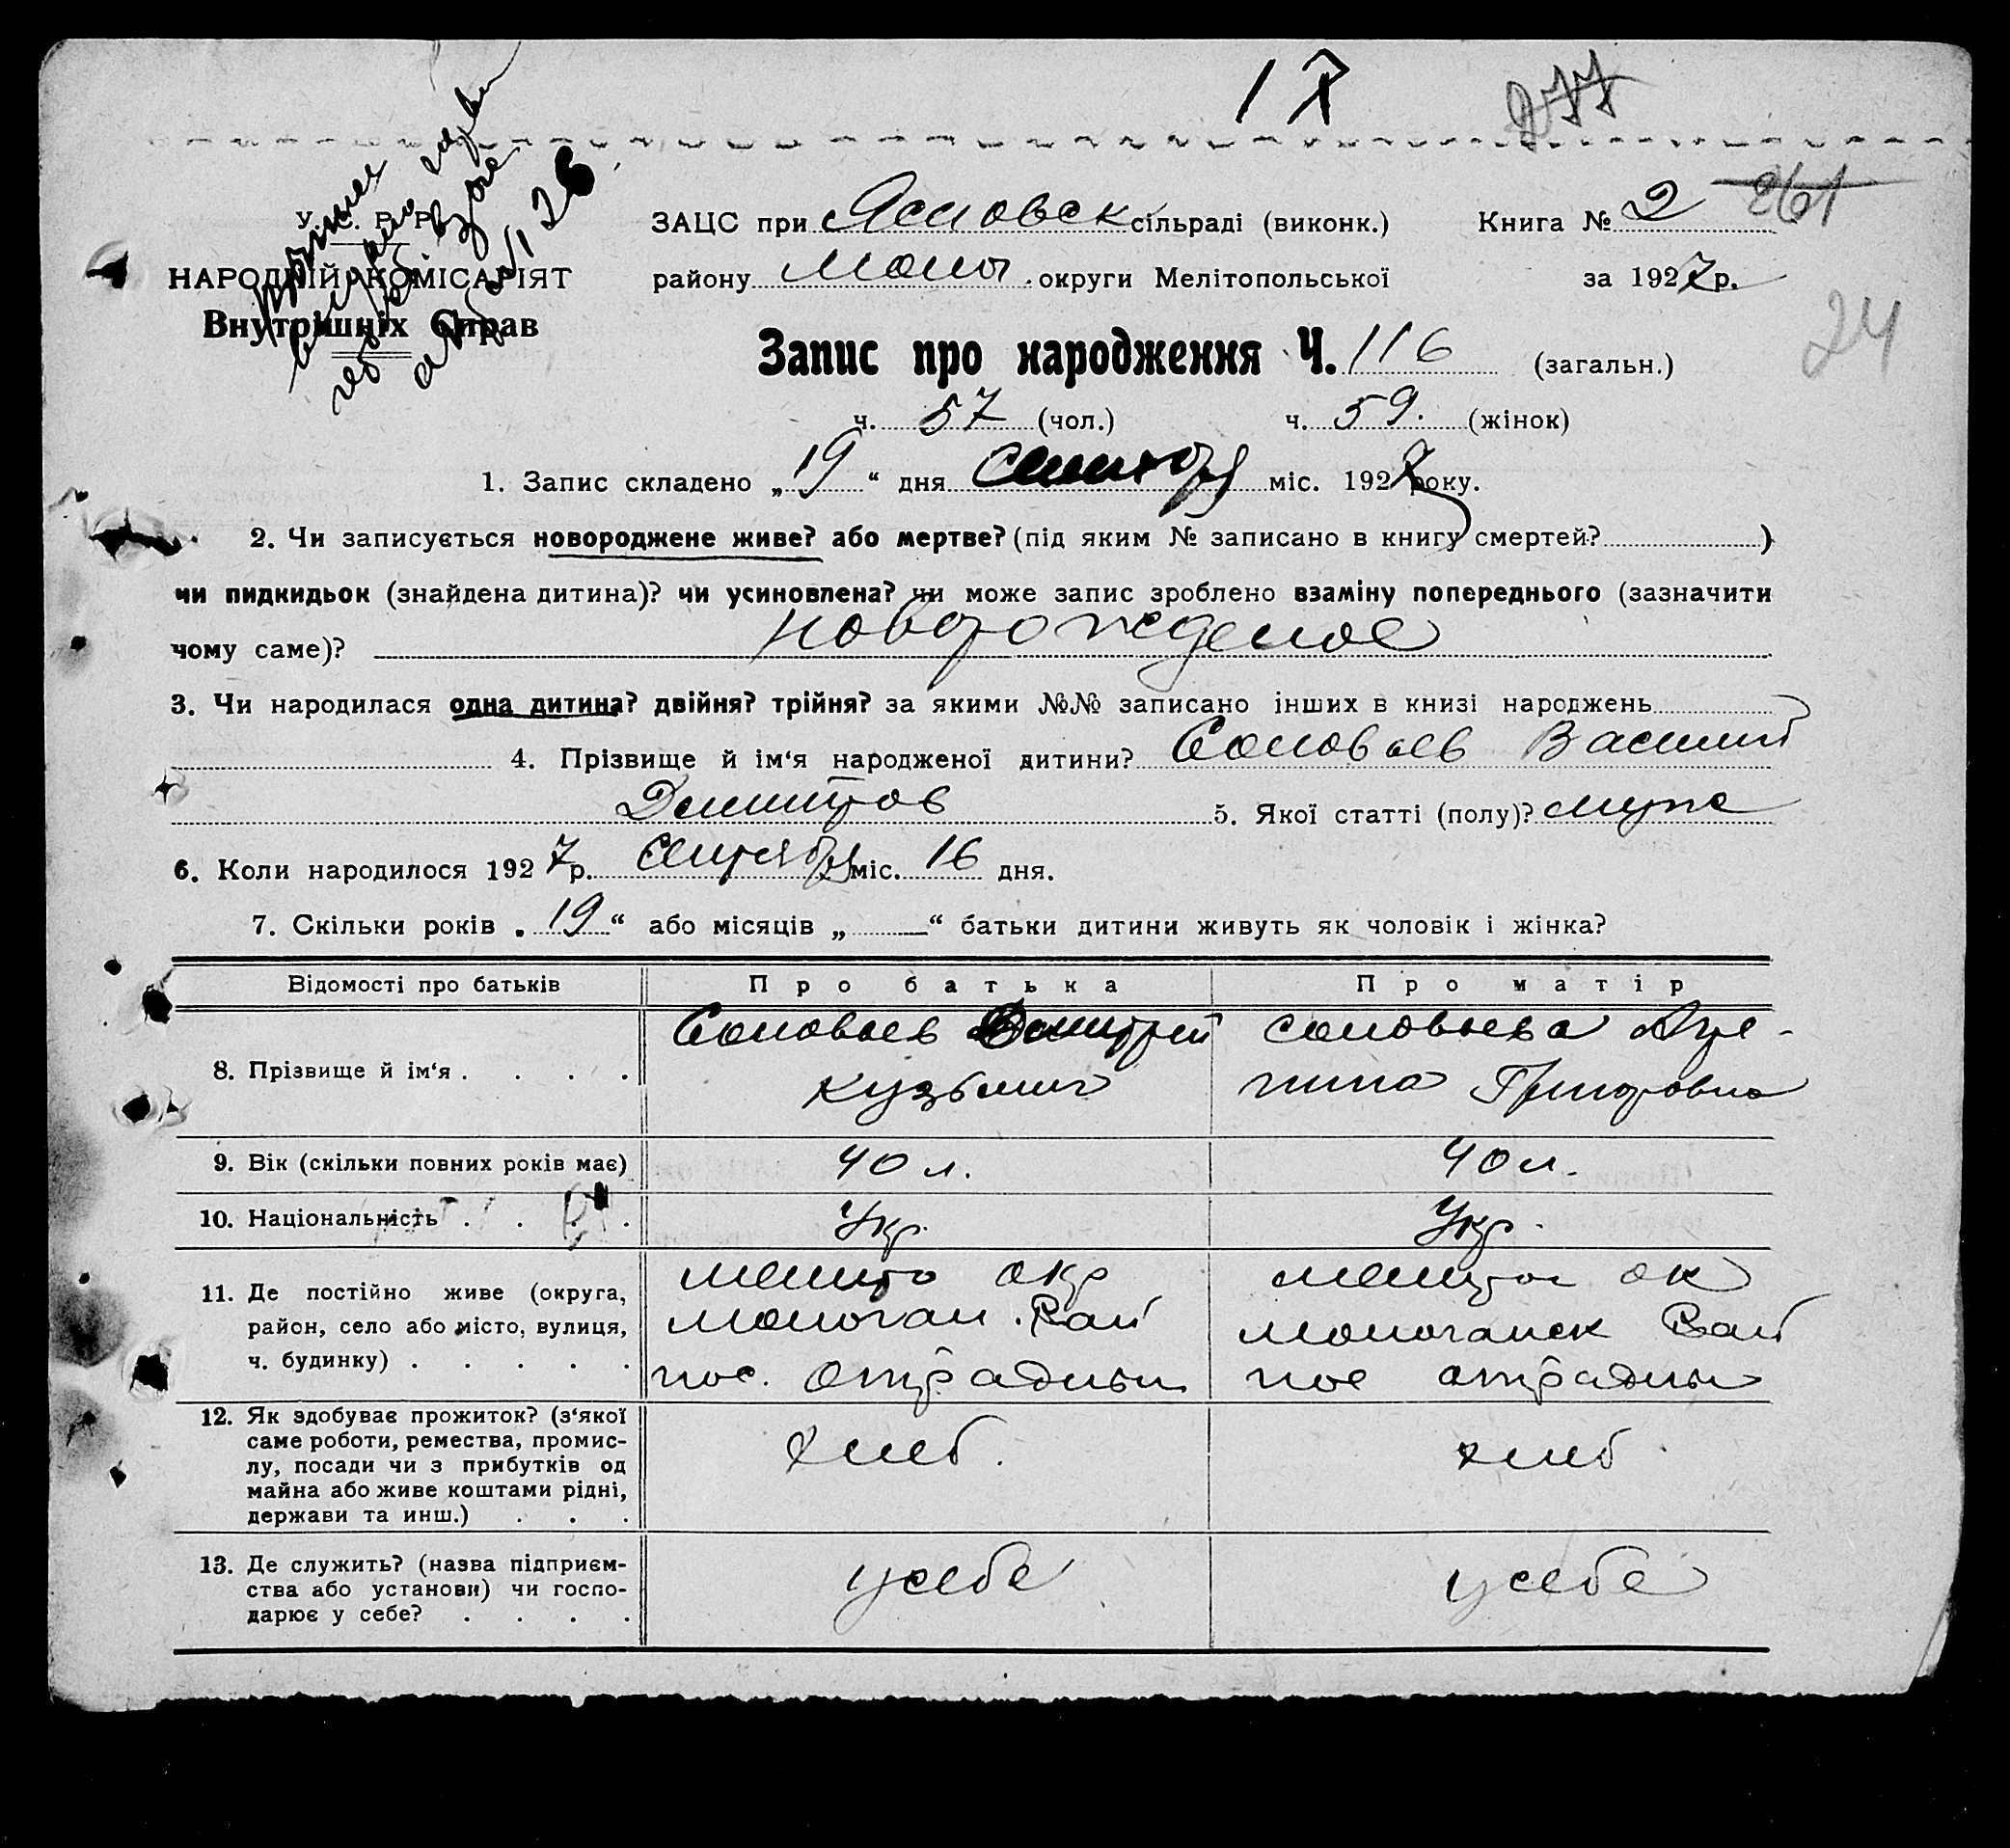 1 7
277
У. С. Р. Р.
НАРОДНІЙ КОМІСАРІЯТ
Внутрішніх Справ
ЗАЦС при Ясновск сільраді (виконк.) Книга № 2 261
району Моло округи Мелітопольської за 1927 р.
24
Запис про народження Ч. 116 (загальн.)
ч. 57 (чол.) ч. 59. (жінок)
1. Запис складено „19“ дня сентябр міс. 1927 року.
2. Чи записується новороджене живе? або мертве? (під яким № записано в книгу смертей? )
чи пидкидьок (знайдена дитина)? чи усиновлена? чи може запис зроблено взаміну попереднього (зазначити
чому саме)? новорожденое
3. Чи народилася одна дитина? двійня? трійня? за якими №№ записано інших в книзі народжень
4. Прізвище й ім‘я народженої дитини? Соловьев Василий
Дмитров 5. Якої статті (полу)? муж
6. Коли народилося 1927 р. сентябр міс. 16 дня.
7. Скільки років „19“ або місяців „ “ батьки дитини живуть як чоловік і жінка?
Відомості про батьків Про батька Про матір
8. Прізвище й ім‘я . . . . Соловьев Дмитрий Кузьмич Соловьева Агрепина Григоровна
9. Вік (скільки повних років має) 40 л. 40 л.
10. Національність . . . . Укр. Укр.
11. Де постійно живе (округа, район, село або місто, вулиця, ч. будинку) . . . . . Мелито окр Молочан. Рай пос. Отрадны Мелитоп ок Молочанск Рай пос отрадны
12. Як здобуває прожиток? (з‘якої саме роботи, ремества, промислу, посади чи з прибутків од майна або живе коштами рідні, держави та инш.) . . . хлеб. хлеб
13. Де служить? (назва підприємства або установи) чи господарює у себе? . . . . у себе у себе